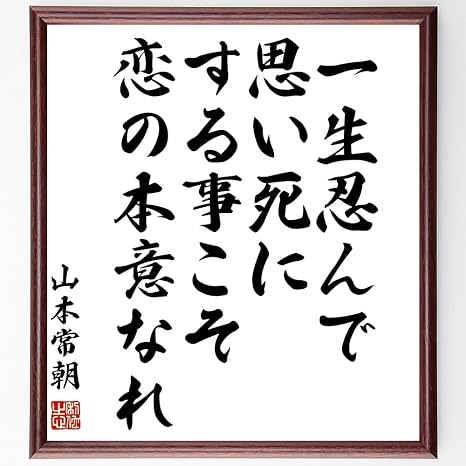 一生忍んで
思い死に
する事こそ
恋の本意なれ
山本常朝